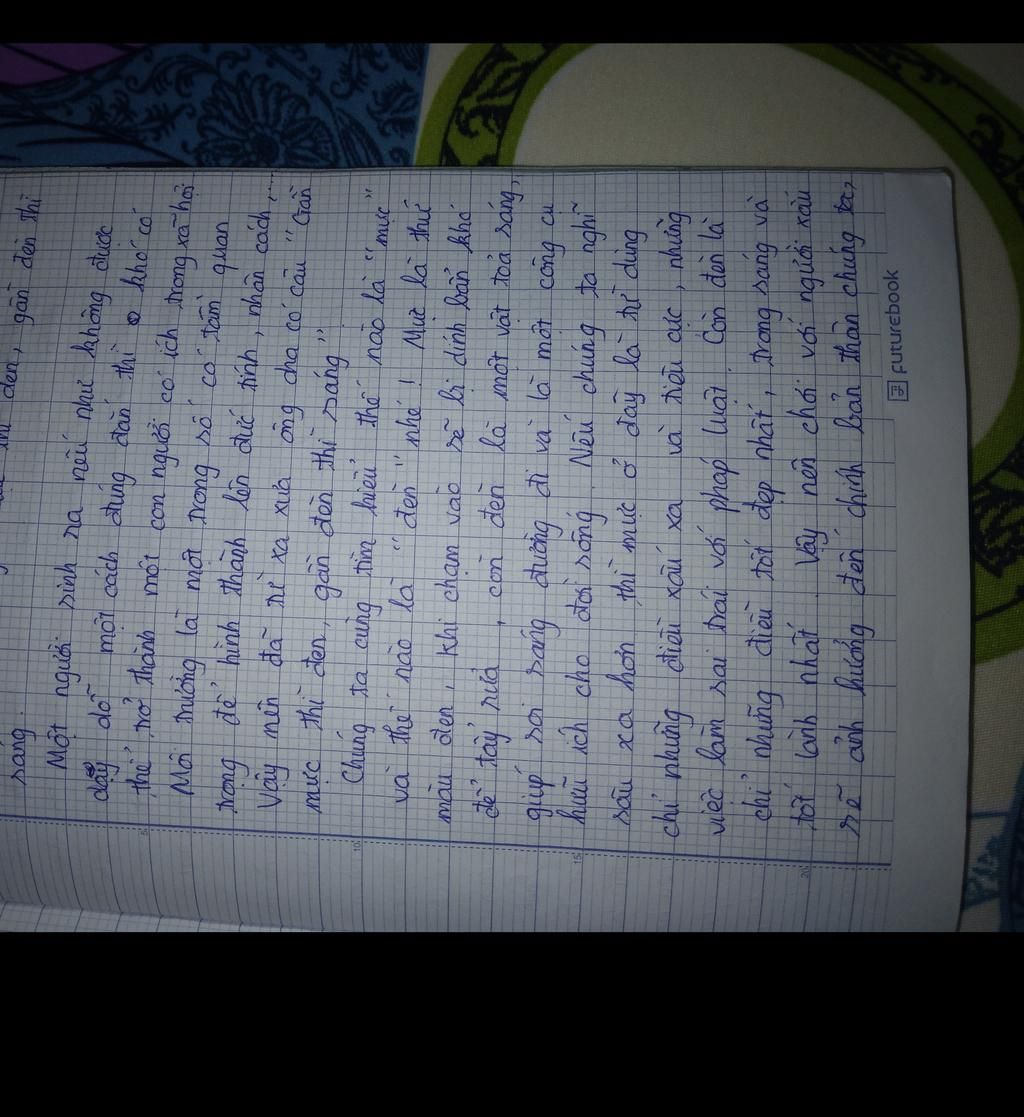 thì đen, gần đèn thì
sáng.
Một người sinh ra nếu như không được
dạy dỗ một cách đúng đắn thì khó có
thể trở thành một con người có ích trong xã hội
Môi trường là một trong số có tầm quan
trọng để hình thành lên đức tính, nhân cách,...
Vậy nên đã từ xa xưa ông cha có câu "Gần
mực thì đen, gần đèn thì sáng"
Chúng ta cùng tìm hiểu thế nào là "mực"
và thế nào là "đèn" nhé! Mực là thứ
màu đen, khi chạm vào sẽ bị dính bẩn khó
để tẩy rửa, còn đèn là một vật toả sáng,
giúp soi sáng đường đi và là một công cụ
hữu ích cho đời sống. Nếu chúng ta nghĩ
sâu xa hơn thì mực ở đây là từ dùng
chỉ những điều xấu xa và tiêu cực, những
việc làm sai trái với pháp luật. Còn đèn là
chỉ những điều tốt đẹp nhất, trong sáng và
tốt lành nhất. Vậy nên chơi với người xấu
sẽ ảnh hưởng đến chính bản thân chúng ta,
5
10
15
20
FUTUREBOOK